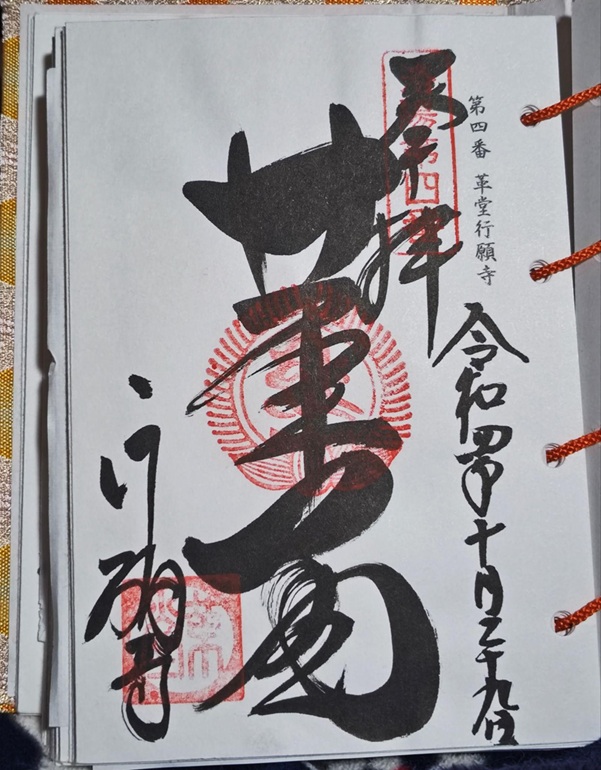 第四番 革堂行願寺
令和四年十月二十九日
奉拝
洛陽第四番
革堂
行願寺